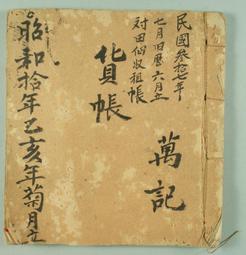 民國叁拾七年
七月旧曆六月立
对田佃收租帳
萬記
貨帳
昭和拾年乙亥年菊月立